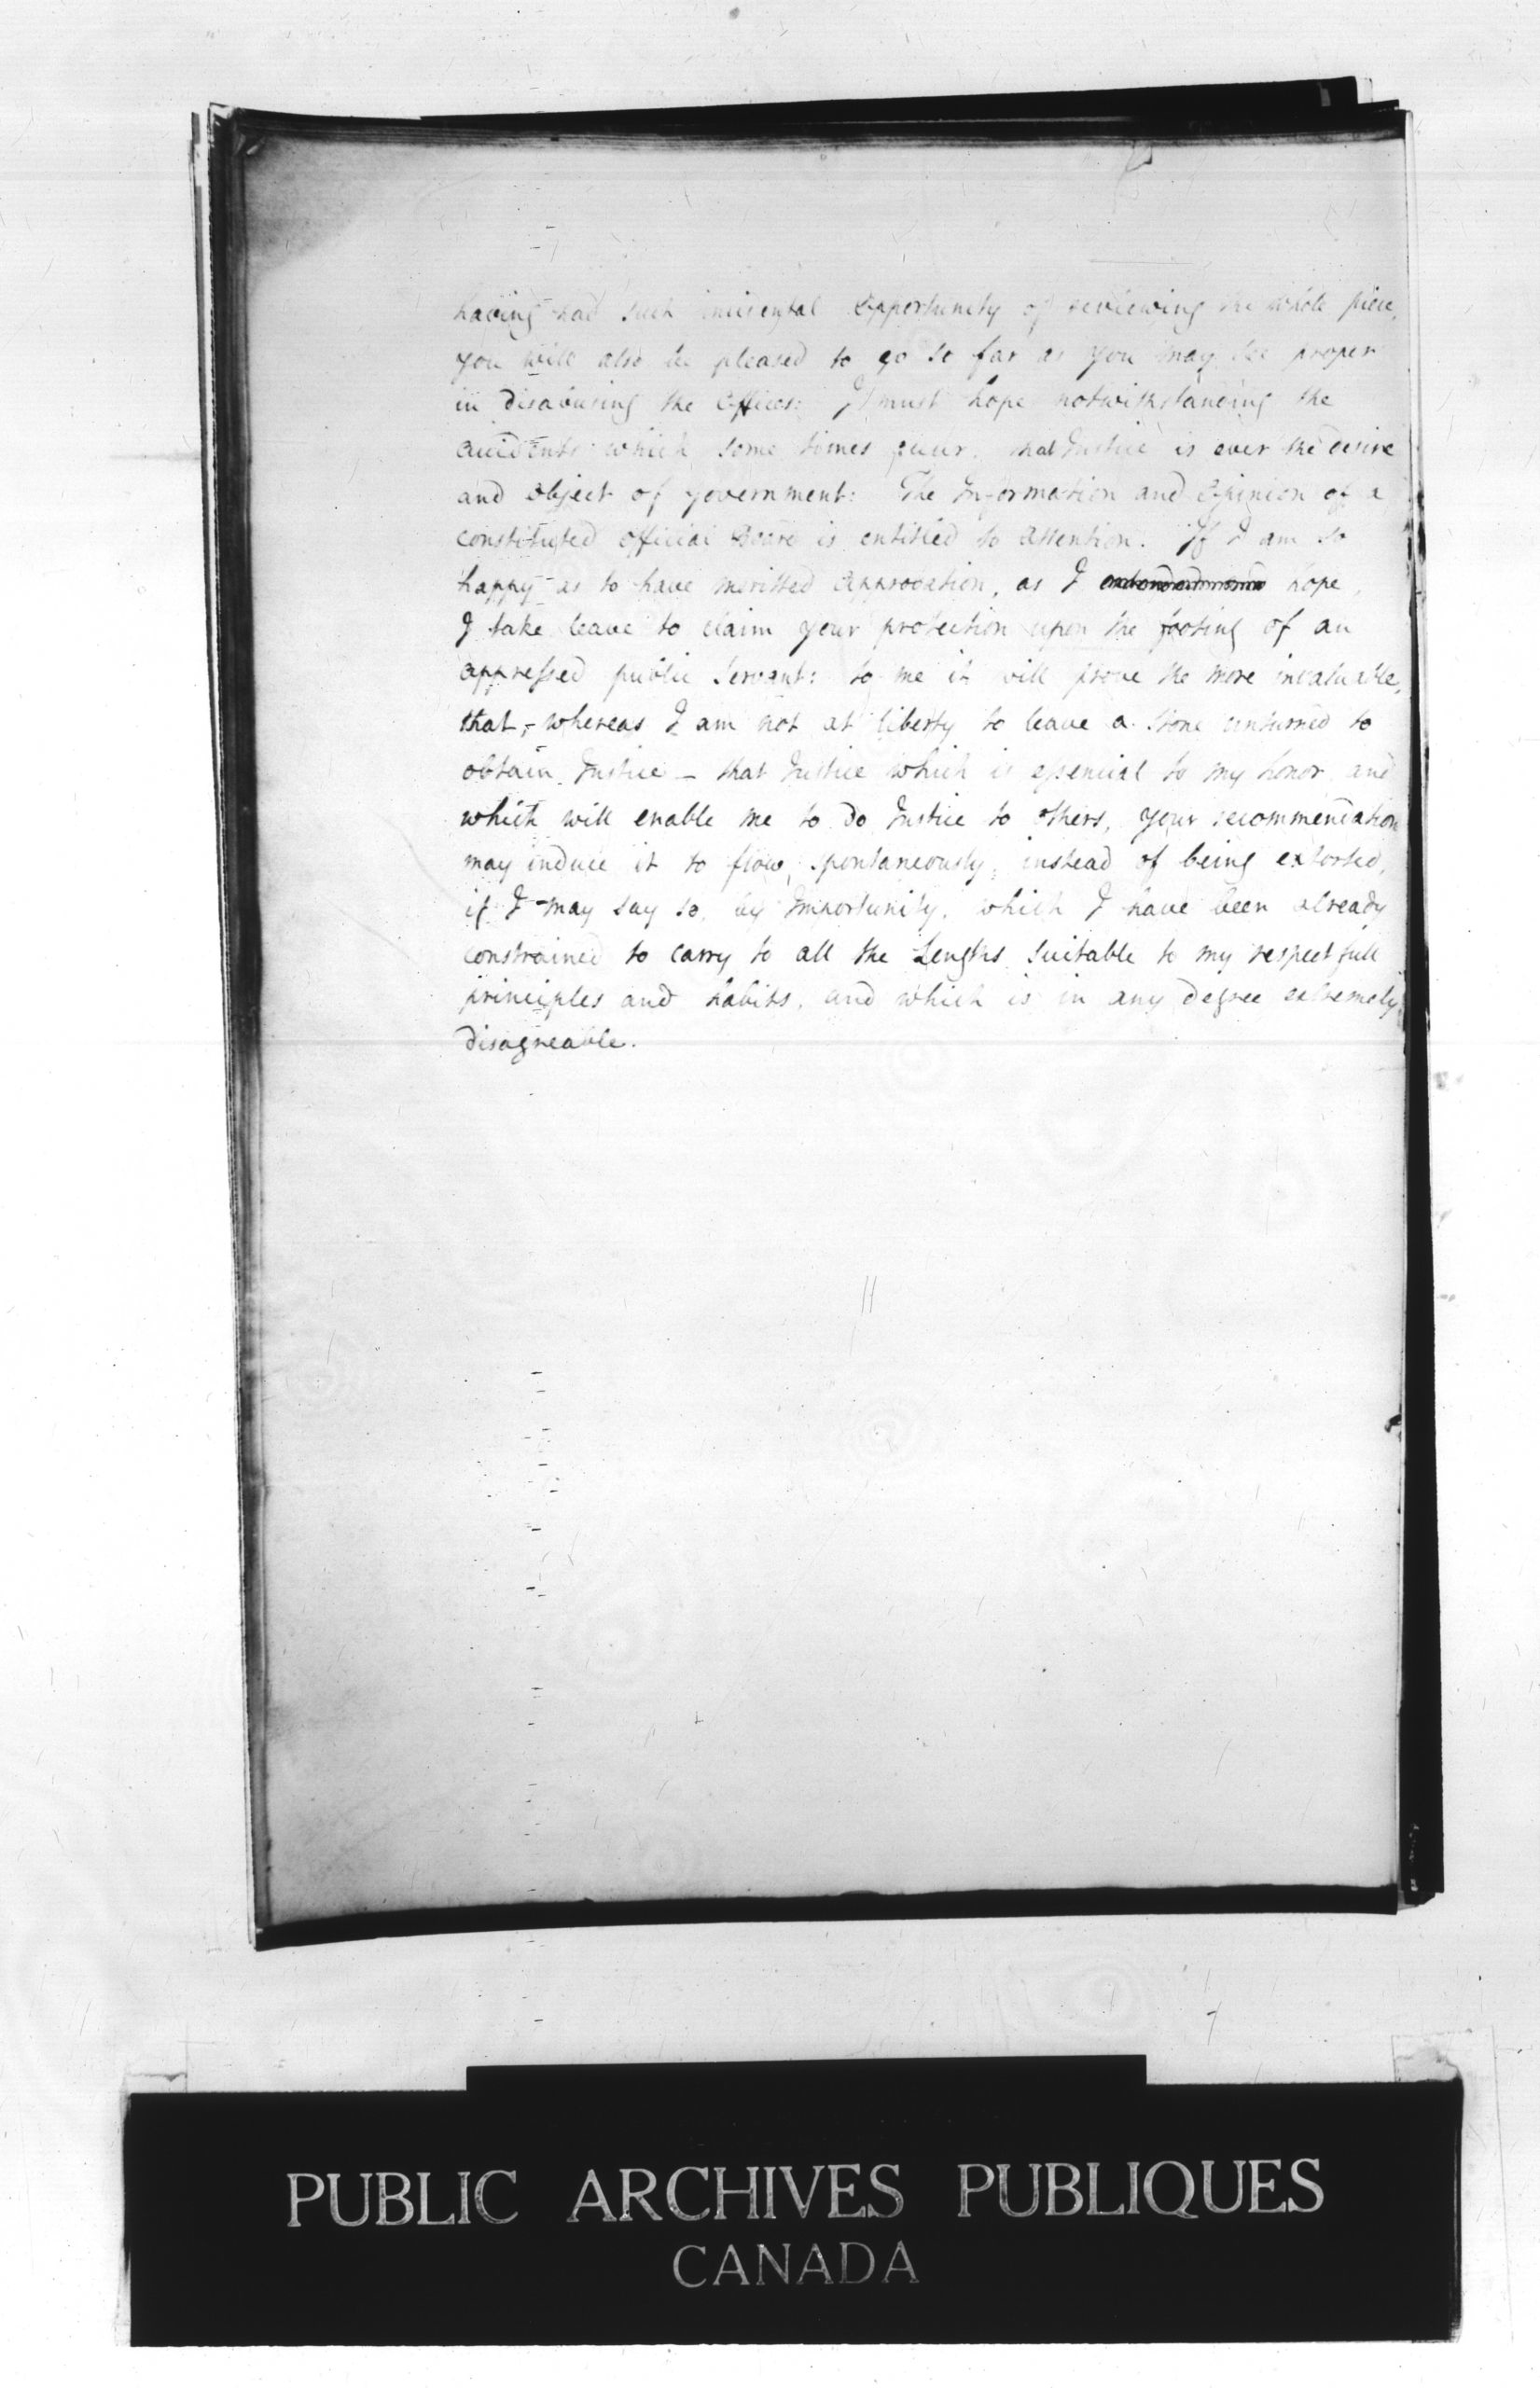 having had such incidental Opportunity of reviewing the whole piece,
you will also be pleased to go so far as you may see proper
in disabusing the Offices: I must hope notwithstanding the
accidents which some times occur, that Justice is ever the desire
and object of government: The Information and Opinion of a
constituted official Board is entitled to attention. If I am so
happy as to have meritted approbation, as I hope,
I take leave to claim your protection upon the footing of an
oppressed public Servant: to me it will prove the more invaluable,
that, - whereas I am not at liberty to leave a Stone unturned to
obtain Justice - that Justice which is essencial to my honor and
which will enable me to do Justice to others, your recommendation
may induce it to flow, spontaneously, instead of being extorted,
if I may say so, by Importunity, which I have been already
constrained to carry to all the Lengths Suitable to my respectfull
principles and habits, and which is in any degree extremely
disagreable.
PUBLIC ARCHIVES PUBLIQUES
CANADA